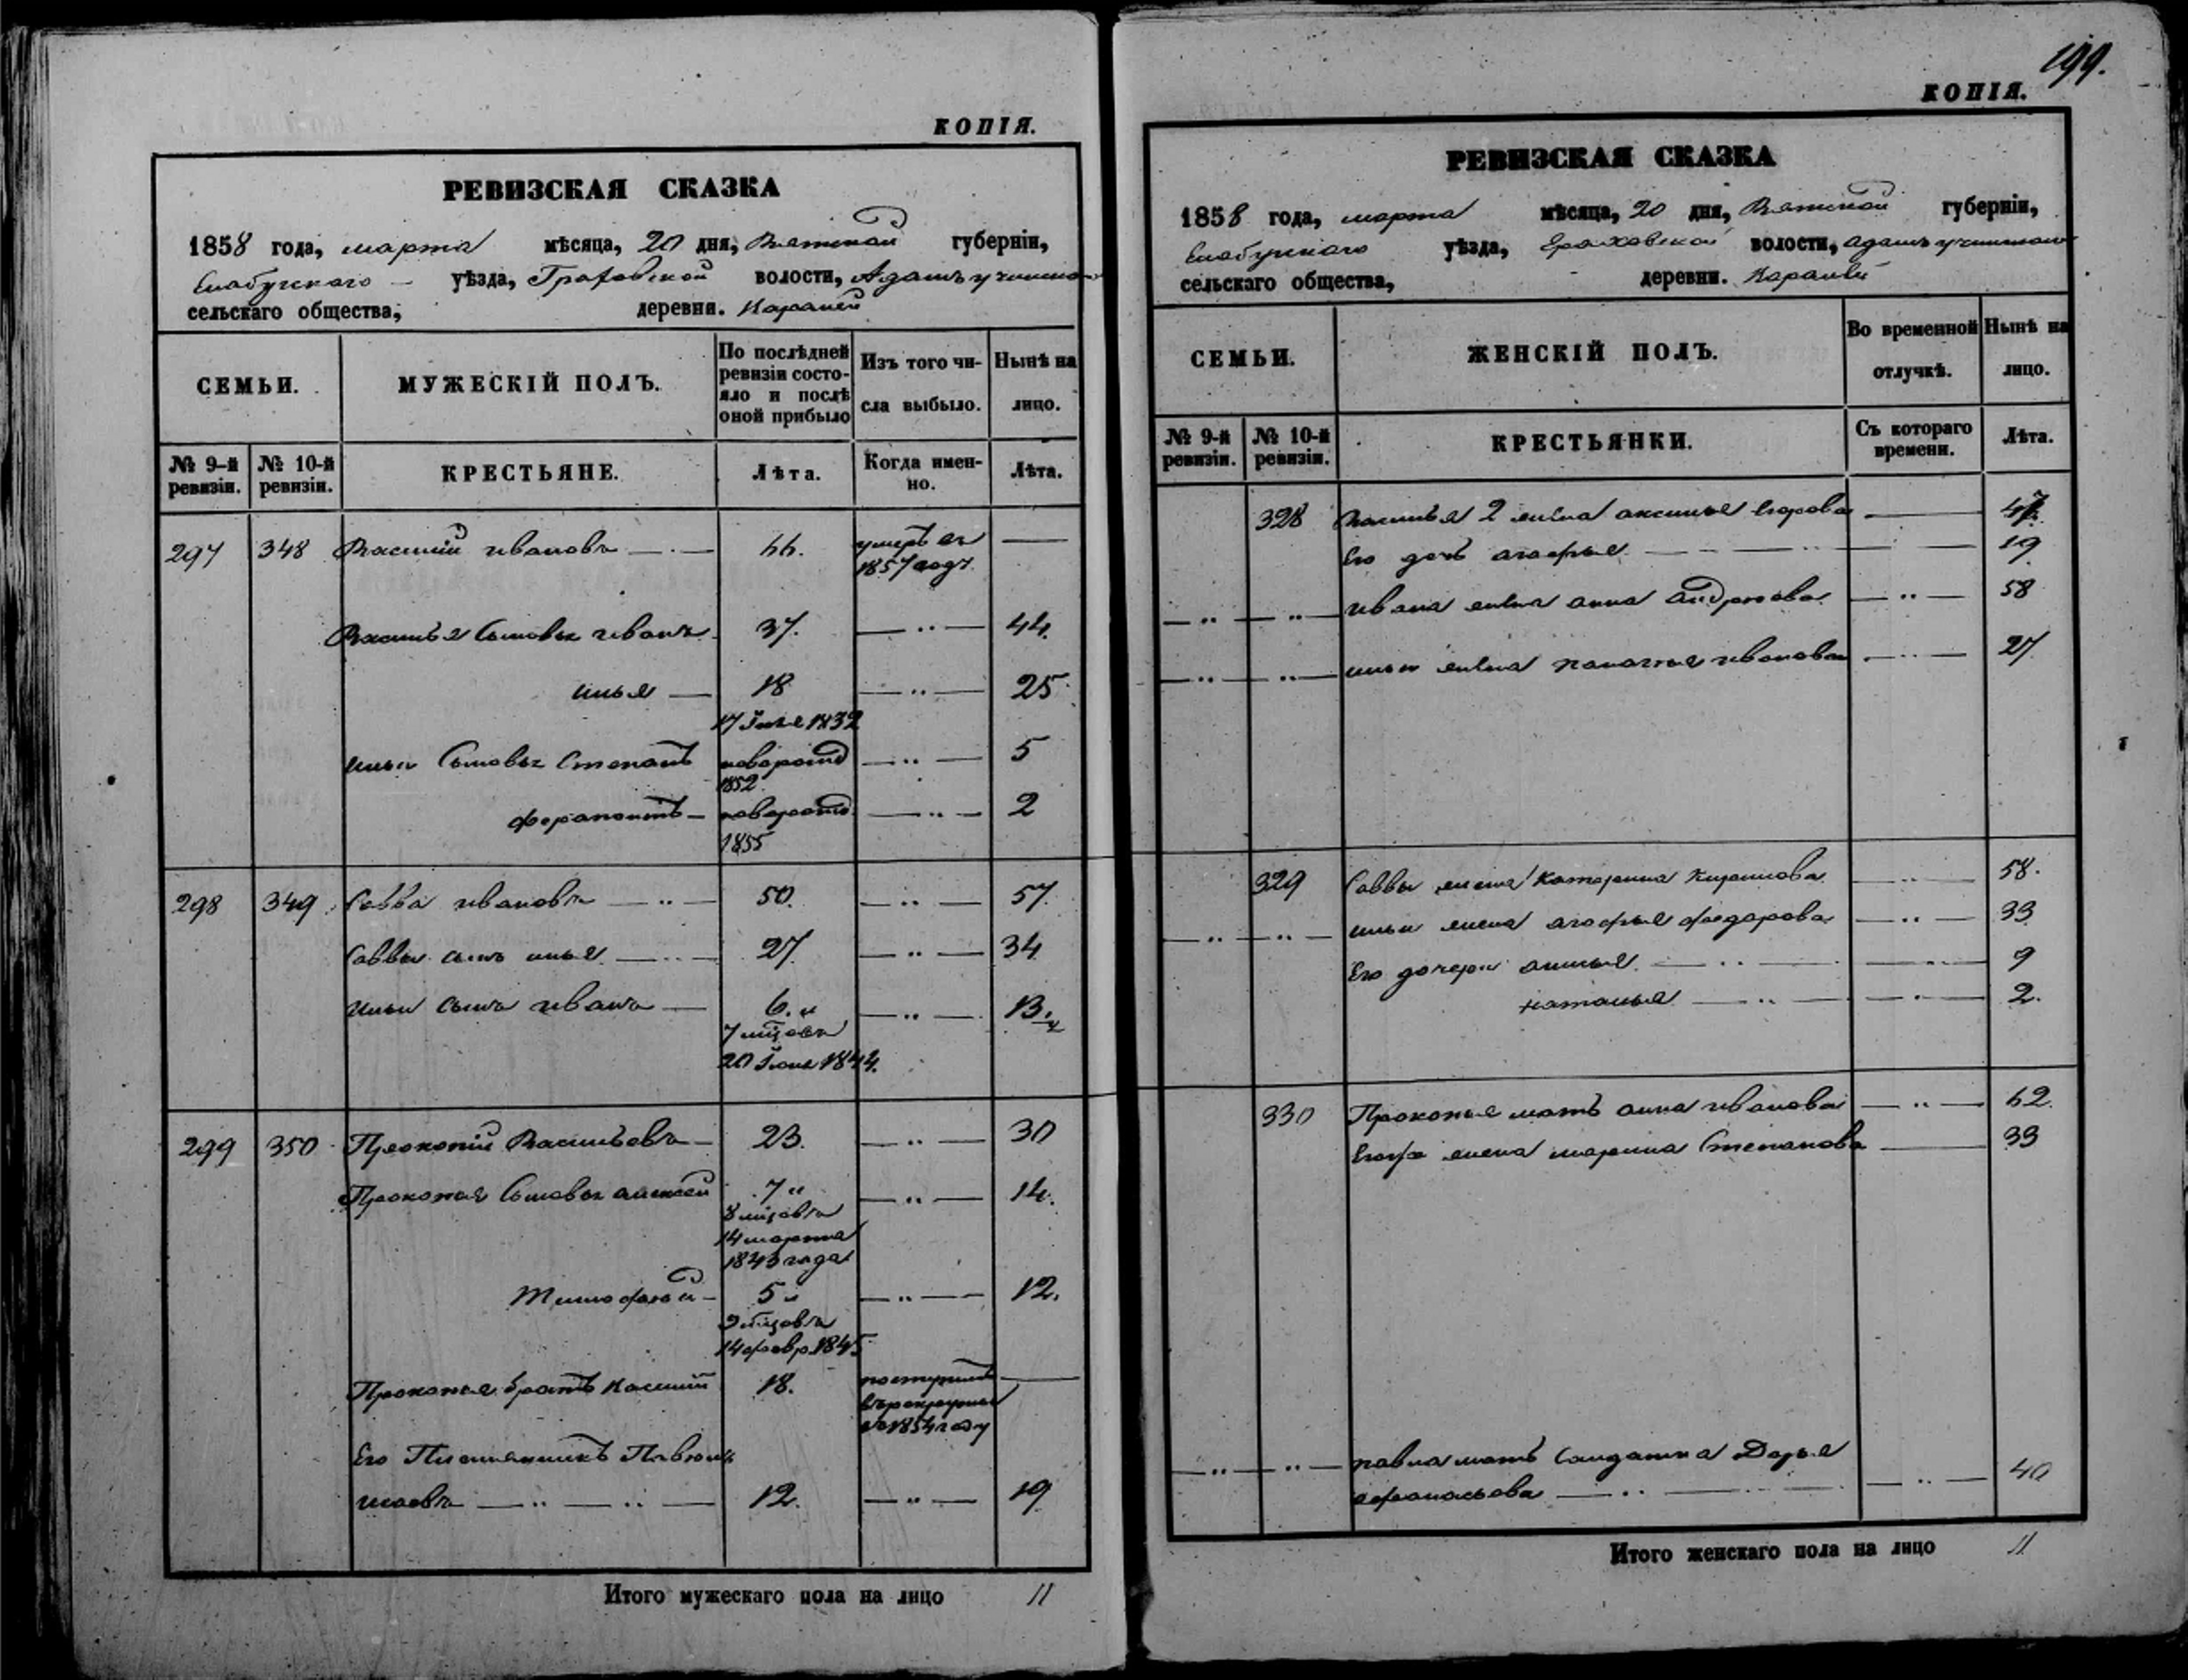 КОПІЯ.
РЕВИЗСКАЯ СКАЗКА
1858 года, марта мѣсяца, 20 дня, Вятской губерніи,
Елабугскаго уѣзда, Граховской волости,
сельскаго общества, деревни.
СЕМЬИ. МУЖЕСКІЙ ПОЛЪ. По послѣдней ревизіи состояло и послѣ оной прибыло Изъ того числа выбыло. Нынѣ на лицо.
№ 9-й ревизіи. № 10-й ревизіи. КРЕСТЬЯНЕ. Лѣта. Когда именно. Лѣта.
297 348 Василій Ивановъ 66. умеръ въ
1857 году
Василья Сыновья Иванъ 37. 44.
Илья 18 25
Ильи Сыновья Степанъ новорожд 5
1852
Ферапонтъ новорожд 2
1855
298 349 Савва Ивановъ 50. 57
Саввы сынъ Илья 27. 34
Ильи сынъ Иванъ 6. и 13.
7 мѣсцовъ
20 Іюня 1844.
299 350 Прокопій Васильевъ 23. 30
Прокопья Сыновья Алексей 7 и 14.
8 мѣсцовъ
14 марта
1843 года
Тимофей 5 и 12.
14 февр. 1845
Прокопья братъ 18. поступилъ
въ рекруты
въ 1854 году
Его Племянникъ
12. 19
Итого мужескаго пола на лицо 11
199.
КОПІЯ.
РЕВИЗСКАЯ СКАЗКА
1858 года, марта мѣсяца, 20 дня, Вятской губерніи,
Елабугскаго уѣзда, Граховской волости,
сельскаго общества, деревни.
СЕМЬИ. ЖЕНСКІЙ ПОЛЪ. Во временной отлучкѣ. Нынѣ на лицо.
№ 9-й ревизіи. № 10-й ревизіи. КРЕСТЬЯНКИ. Съ котораго времени. Лѣта.
328 Василья 2 жена Аксинья Егорова 47.
Его дочь Агафья 19
Ивана жена Анна 58
Ильи жена Иванова 27
329 Саввы жена Катерина Кирилова 58.
Ильи жена Агафья Федорова 33
Его дочери 9
Наталья 2.
330 Прокопья мать Анна Иванова 62.
жена Марина Степанова 33
Павла мать Солдатка Дарья
Афанасьева 40
Итого женскаго пола на лицо 11